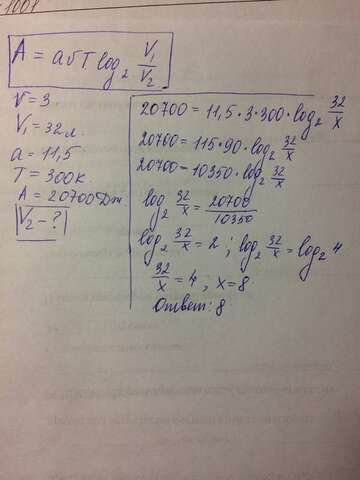 1001
A = a√T log₂ V₁/V₂
V = 3
V₁ = 32 л.
a = 11,5
T = 300 К.
A = 20700 Дж
V₂ = ?
20700 = 11,5 · 3 · 300 · log₂ 32/x
20700 = 115 · 90 · log₂ 32/x
20700 = 10350 · log₂ 32/x
log₂ 32/x = 20700/10350
log₂ 32/x = 2 ; log₂ 32/x = log₂ 4
32/x = 4 ; x = 8
Ответ: 8